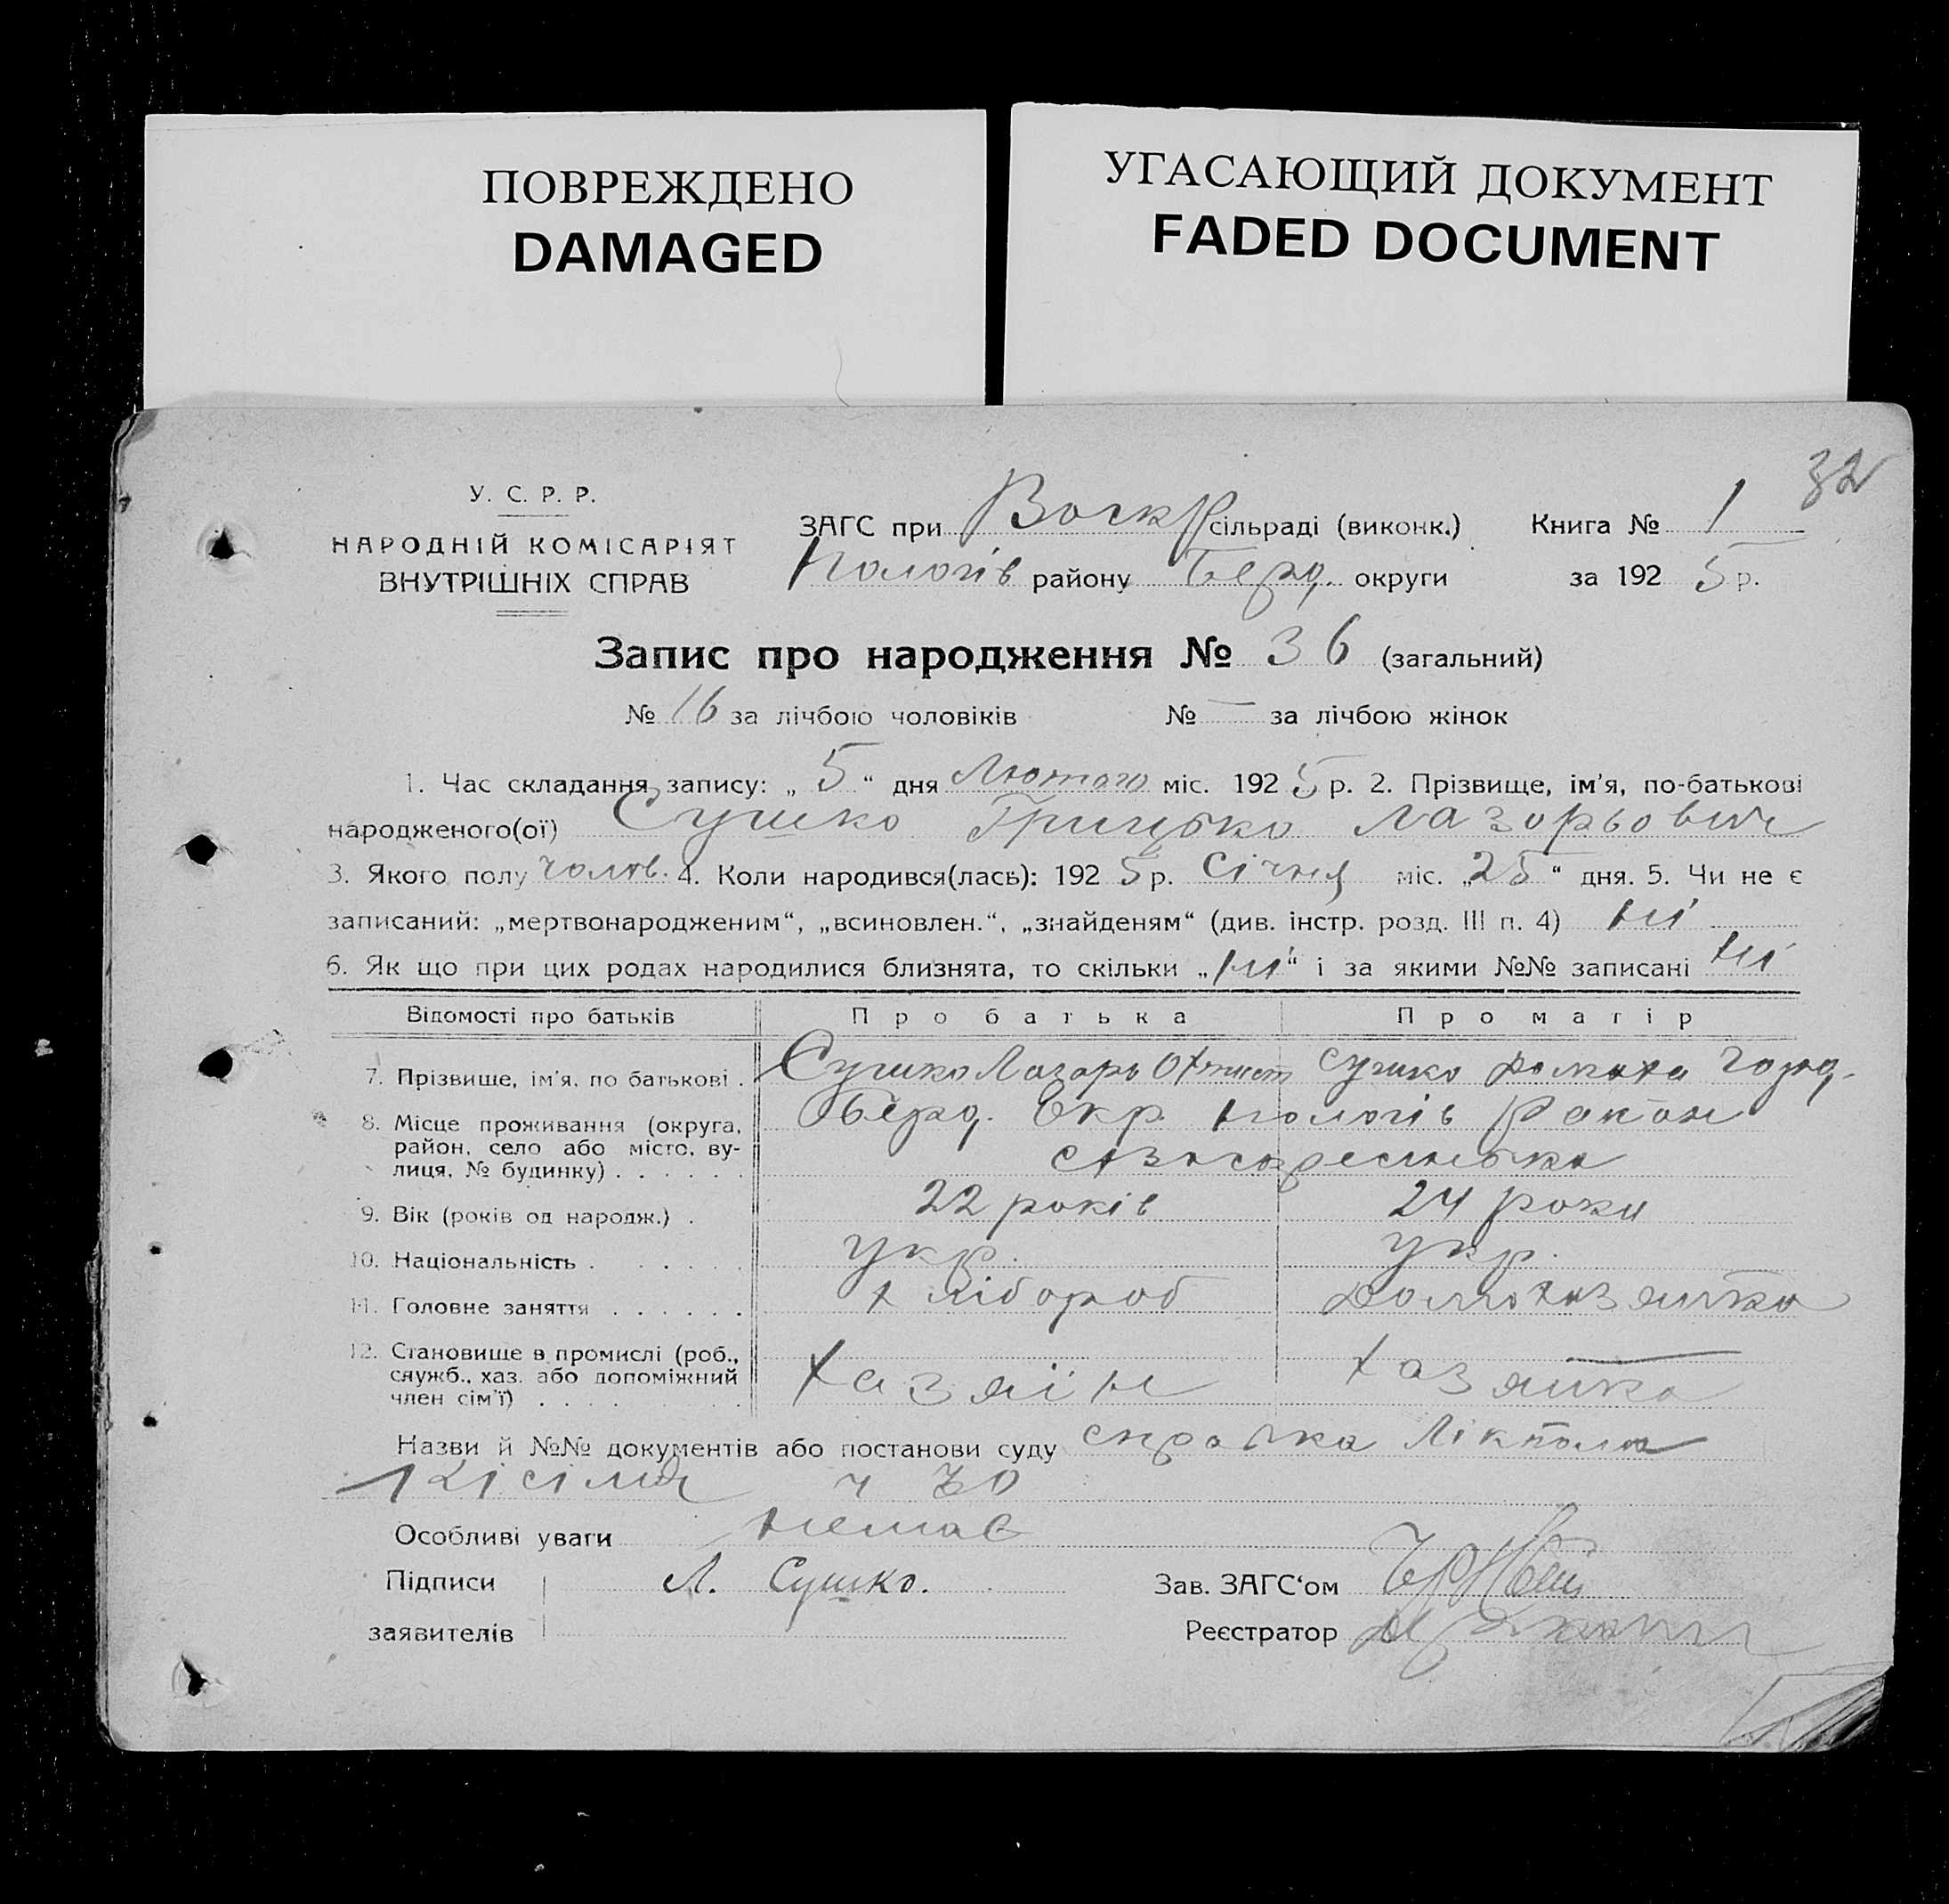 ПОВРЕЖДЕНО
DAMAGED
УГАСАЮЩИЙ ДОКУМЕНТ
FADED DOCUMENT
32
У. С. Р. Р.
НАРОДНІЙ КОМІСАРІЯТ
ВНУТРІШНІХ СПРАВ
ЗАГС при Воскр сільраді (виконк.) Книга № 1
Пологів району Берд. округи за 1925 р.
Запис про народження № 36 (загальний)
№ 16 за лічбою чоловіків № — за лічбою жінок
1. Час складання запису: „5“ дня Лютого міс. 1925 р. 2. Прізвище, ім'я, по-батькові
народженого(ої) Сушко Грицько Лазорьович
3. Якого полу чолов. 4. Коли народився(лась): 1925 р. Січня міс. „25“ дня. 5. Чи не є
записаний: „мертвонародженим“, „всиновлен.“, „знайденям“ (див. інстр. розд. III п. 4) ні
6. Як що при цих родах народилися близнята, то скільки „ні“ і за якими №№ записані ні
Відомості про батьків Про батька Про матір
7. Прізвище, ім'я, по батькові . Сушко Лазарь Сушко
8. Місце проживання (округа, район, село або місто, вулиця, № будинку) . . . . . . Берд. Окр. Пологів Район
9. Вік (років од народж.) . 22 років 24 роки
10. Національність . . . . . . укр. укр.
11. Головне заняття . . . . . . хлібороб домохазяйка
12. Становище в промислі (роб.,
служб., хаз. або допоміжний
член сім'ї) . . . . . . хазяїн хазяйка
Назви й №№ документів або постанови суду справка
ч 30
Особливі уваги немає
Підписи Л. Сушко. Зав. ЗАГС'ом
заявителів Реєстратор